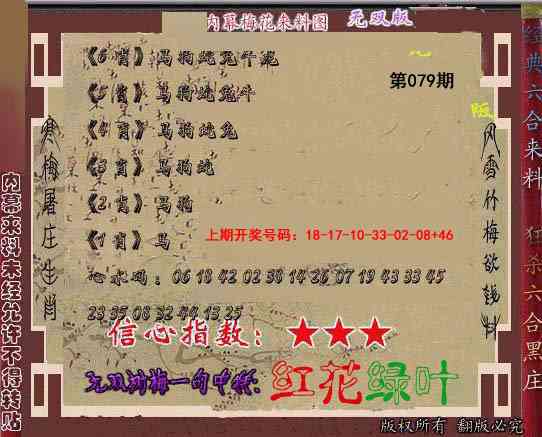 内幕梅花来料图 无双版
《6肖》马狗蛇兔牛龙
第079期
《5肖》马狗蛇兔牛
《4肖》马狗蛇兔
《3肖》马狗蛇
《2肖》马狗
《1肖》马
上期开奖号码：18-17-10-33-02-08+46
心水码：06 18 42 02 38 14 26 07 19 43 33 45
23 35 08 32 44 13 25
信心指数：★★★
无双浏梅一句中特：红花绿叶
版权所有 翻版必究
寒梅屠庄生肖
风雪竹梅欲钱料
内幕来料未经允许不得转贴
经典六合来料 狂杀六合黑庄